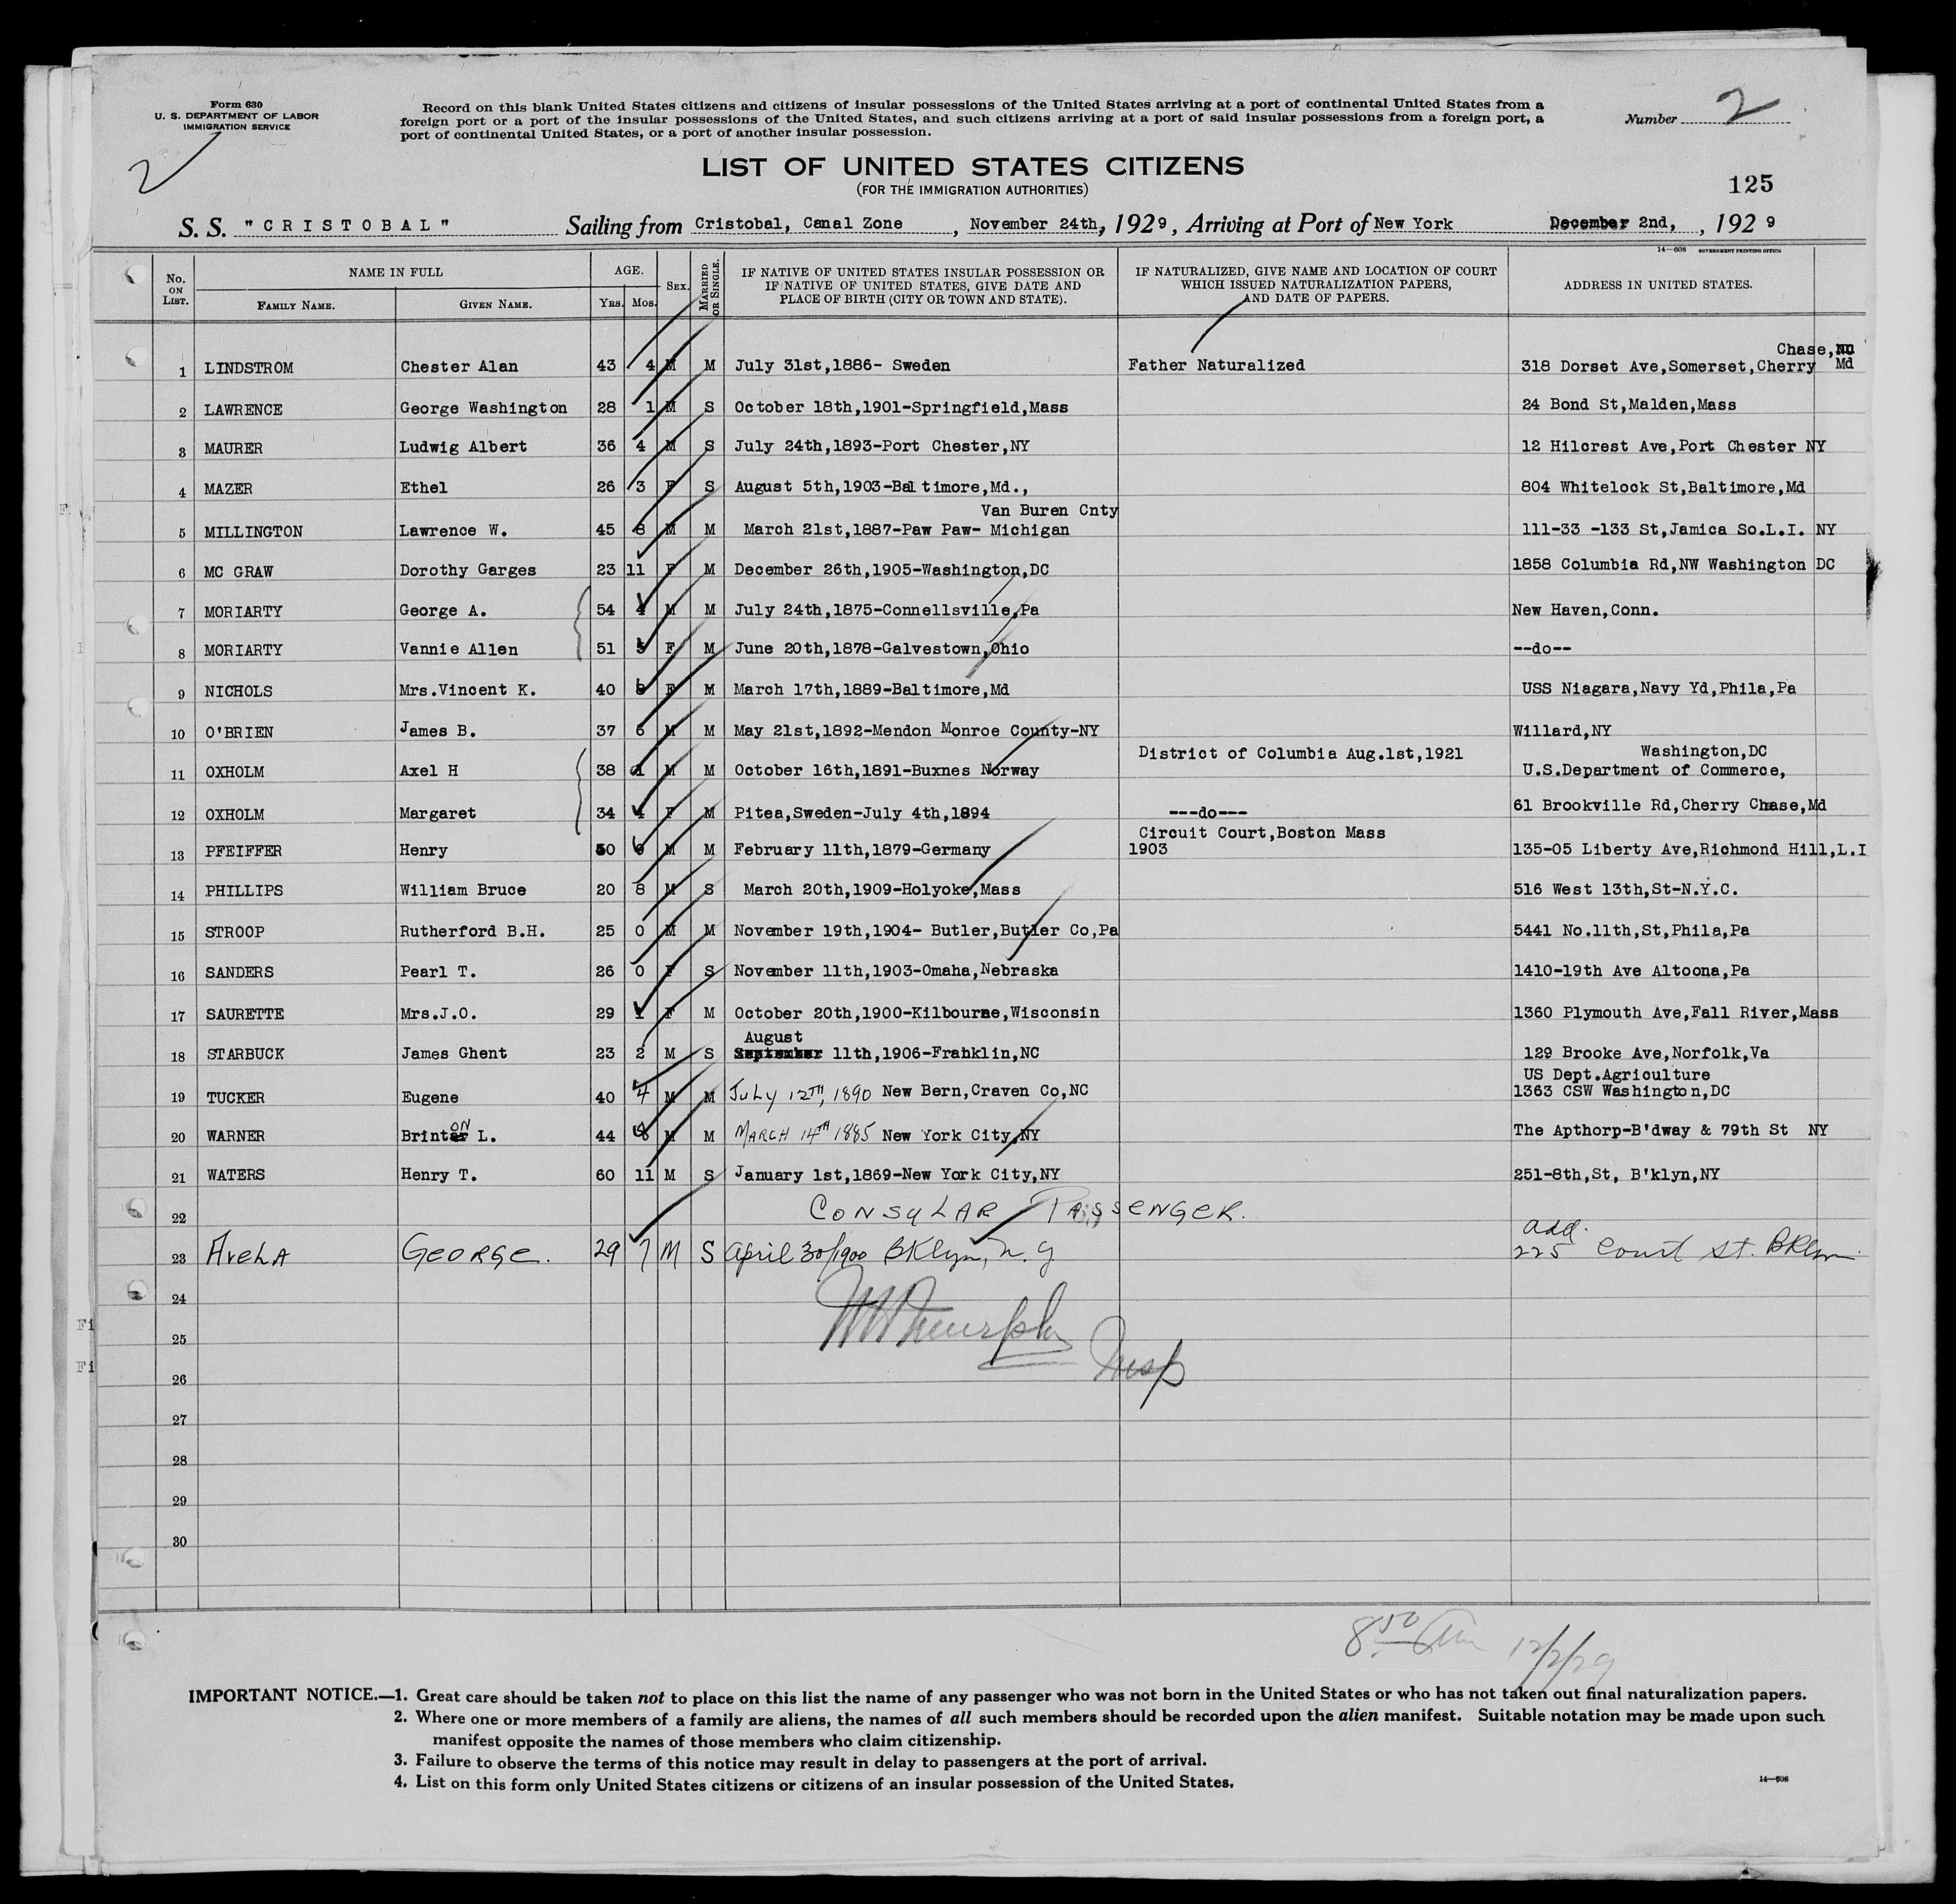 Form 630
U. S. DEPARTMENT OF LABOR
IMMIGRATION SERVICE
2
Record on this blank United States citizens and citizens of insular possessions of the United States arriving at a port of continental United States from a
foreign port or a port of the insular possessions of the United States, and such citizens arriving at a port of said insular possessions from a foreign port, a
port of continental United States, or a port of another insular possession.
Number 2
LIST OF UNITED STATES CITIZENS
(FOR THE IMMIGRATION AUTHORITIES)
125
S. S. "CRISTOBAL" Sailing from Cristobal, Canal Zone, November 24th, 1929, Arriving at Port of New York December 2nd, , 1929
14—608 GOVERNMENT PRINTING OFFICE
No. ON LIST. NAME IN FULL AGE. SEX. MARRIED OR SINGLE. IF NATIVE OF UNITED STATES INSULAR POSSESSION OR IF NATIVE OF UNITED STATES, GIVE DATE AND PLACE OF BIRTH (CITY OR TOWN AND STATE). IF NATURALIZED, GIVE NAME AND LOCATION OF COURT WHICH ISSUED NATURALIZATION PAPERS, AND DATE OF PAPERS. ADDRESS IN UNITED STATES.
FAMILY NAME. GIVEN NAME. YRS. MOS.
Chase,
1 LINDSTROM Chester Alan 43 4 M M July 31st,1886- Sweden Father Naturalized 318 Dorset Ave,Somerset,Cherry Md
2 LAWRENCE George Washington 28 1 M S October 18th,1901-Springfield,Mass 24 Bond St,Malden,Mass
3 MAURER Ludwig Albert 36 4 M S July 24th,1893-Port Chester,NY 12 Hilcrest Ave,Port Chester NY
4 MAZER Ethel 26 3 F S August 5th,1903-Baltimore,Md., 804 Whitelock St,Baltimore,Md
Van Buren Cnty
5 MILLINGTON Lawrence W. 45 8 M M March 21st,1887-Paw Paw- Michigan 111-33 -133 St,Jamica So.L.I. NY
6 MC GRAW Dorothy Garges 23 11 F M December 26th,1905-Washington,DC 1858 Columbia Rd,NW Washington DC
7 MORIARTY George A. 54 4 M M July 24th,1875-Connellsville,Pa New Haven,Conn.
8 MORIARTY Vannie Allen 51 5 F M June 20th,1878-Galvestown,Ohio --do--
9 NICHOLS Mrs.Vincent K. 40 8 F M March 17th,1889-Baltimore,Md USS Niagara,Navy Yd,Phila,Pa
10 O'BRIEN James B. 37 6 M M May 21st,1892-Mendon Monroe County-NY Willard,NY
District of Columbia Aug.1st,1921 Washington,DC
11 OXHOLM Axel H 38 1 M M October 16th,1891-Buxnes Norway U.S.Department of Commerce,
12 OXHOLM Margaret 34 4 F M Pitea,Sweden-July 4th,1894 ---do--- 61 Brookville Rd,Cherry Chase,Md
Circuit Court,Boston Mass
13 PFEIFFER Henry 50 9 M M February 11th,1879-Germany 1903 135-05 Liberty Ave,Richmond Hill,L.I
14 PHILLIPS William Bruce 20 8 M S March 20th,1909-Holyoke,Mass 516 West 13th,St-N.Y.C.
15 STROOP Rutherford B.H. 25 0 M M November 19th,1904- Butler,Butler Co,Pa 5441 No.11th,St,Phila,Pa
16 SANDERS Pearl T. 26 0 F S November 11th,1903-Omaha,Nebraska 1410-19th Ave Altoona,Pa
17 SAURETTE Mrs.J.O. 29 1 F M October 20th,1900-Kilbourne,Wisconsin 1360 Plymouth Ave,Fall River,Mass
August
18 STARBUCK James Ghent 23 2 M S September 11th,1906-Frahklin,NC 129 Brooke Ave,Norfolk,Va
US Dept.Agriculture
19 TUCKER Eugene 40 4 M M JULY 12TH, 1890 New Bern,Craven Co,NC 1363 CSW Washington,DC
ON
20 WARNER Brinter L. 44 8 M M MARCH 14TH 1885 New York City,NY The Apthorp-B'dway & 79th St NY
21 WATERS Henry T. 60 11 M S January 1st,1869-New York City,NY 251-8th,St, B'klyn,NY
22 CONSULAR PASSENGER.
add.
23 AvelA GEORGE. 29 7 M S April 30/1900 BKlyn, n.y 225 Court St. BKlyn
24
25
Insp
26
27
28
29
30
8 50 am 12/2/29
IMPORTANT NOTICE.—1. Great care should be taken not to place on this list the name of any passenger who was not born in the United States or who has not taken out final naturalization papers.
2. Where one or more members of a family are aliens, the names of all such members should be recorded upon the alien manifest. Suitable notation may be made upon such
manifest opposite the names of those members who claim citizenship.
3. Failure to observe the terms of this notice may result in delay to passengers at the port of arrival.
4. List on this form only United States citizens or citizens of an insular possession of the United States.
14—608